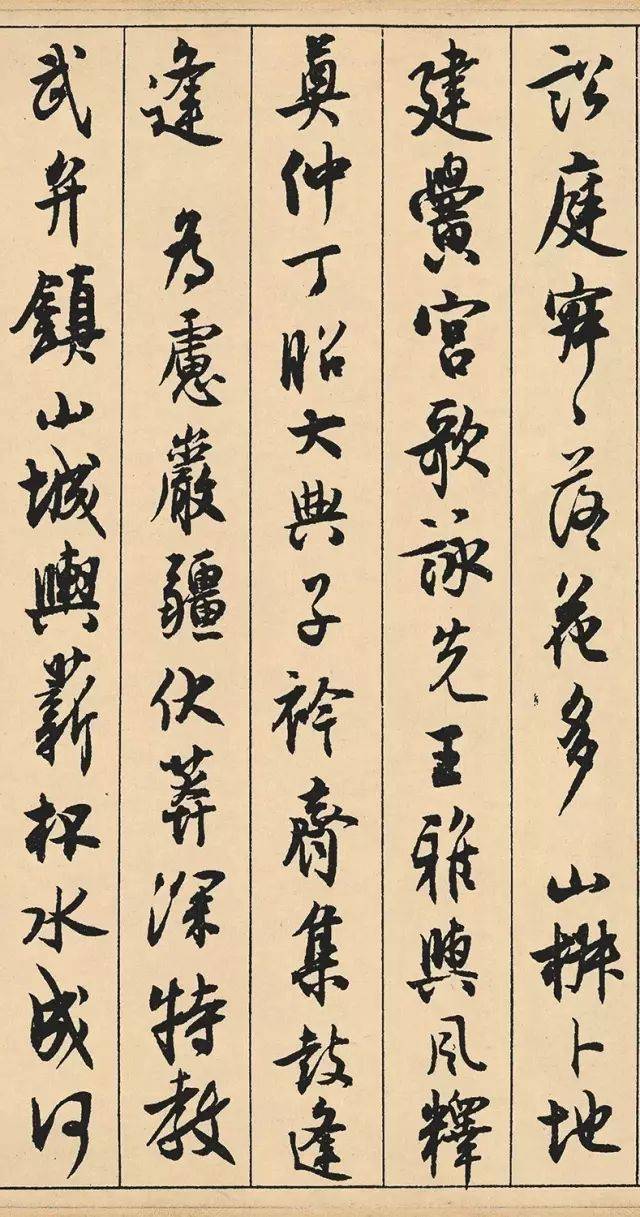 訟庭寂〻落花多 山椒卜地
建黌宮歌詠先王雅與風釋
奠仲丁昭大典子衿齊集鼓逢
逢 為慮巖疆伏莽深特教
武弁鎮山城輿薪杯水成何